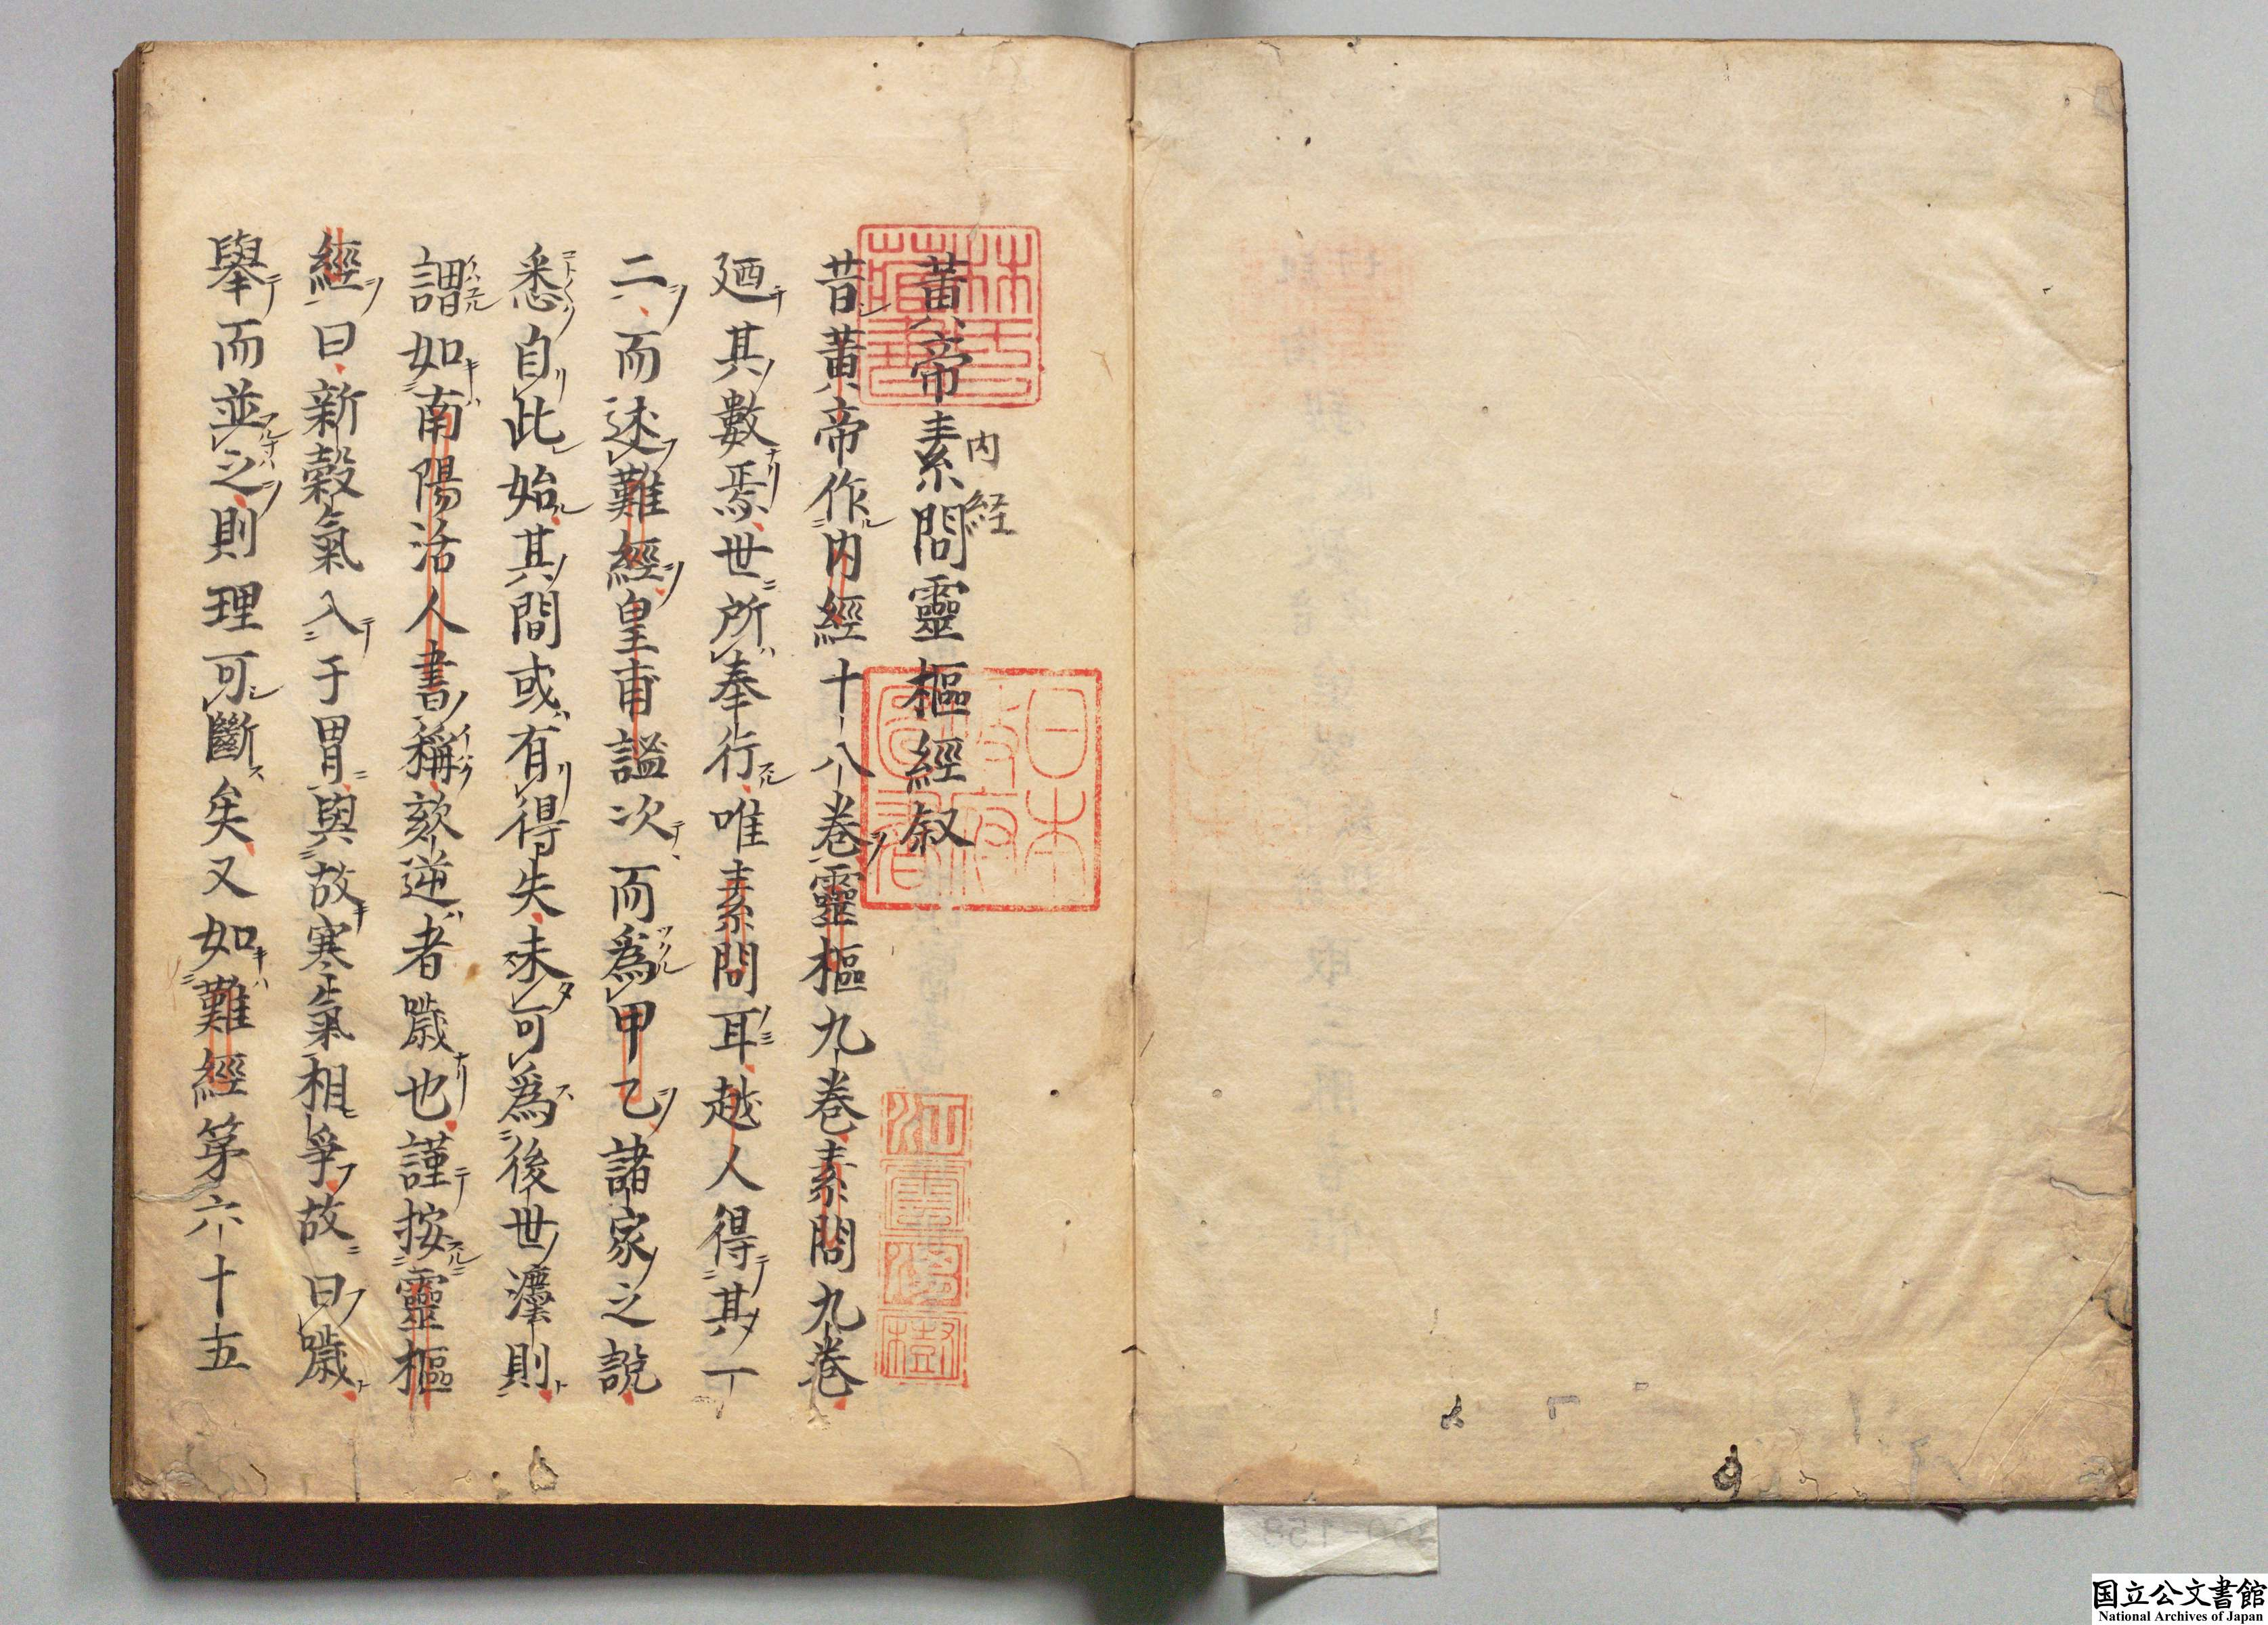 黃帝素問靈樞經叙
内経
昔黃帝作内經十八卷靈樞九卷素問九卷
廼其數焉世所奉行唯素問耳越人得其一
二而述難經皇甫謐次而爲甲乙諸家之說
悉自此始其間或有得失未可爲後世灋則
謂如南陽活人書稱欬逆者噦也謹按靈樞
經曰新穀氣入于胃與故寒氣相爭故曰噦
擧而並之則理可斷矣又如難經第六十五
林氏藏書
日本政府圖書
江雲渭樹
国立公文書館
National Archives of Japan